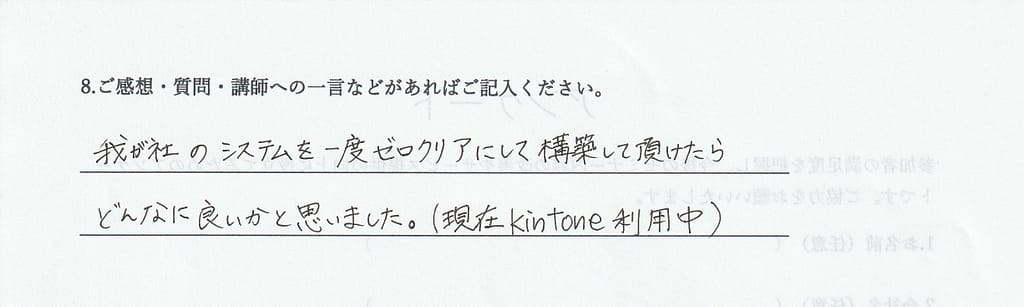 8.ご感想・質問・講師への一言などがあればご記入ください。
我が社のシステムを一度ゼロクリアにして構築して頂けたら
どんなに良いかと思いました。(現在kintone利用中)